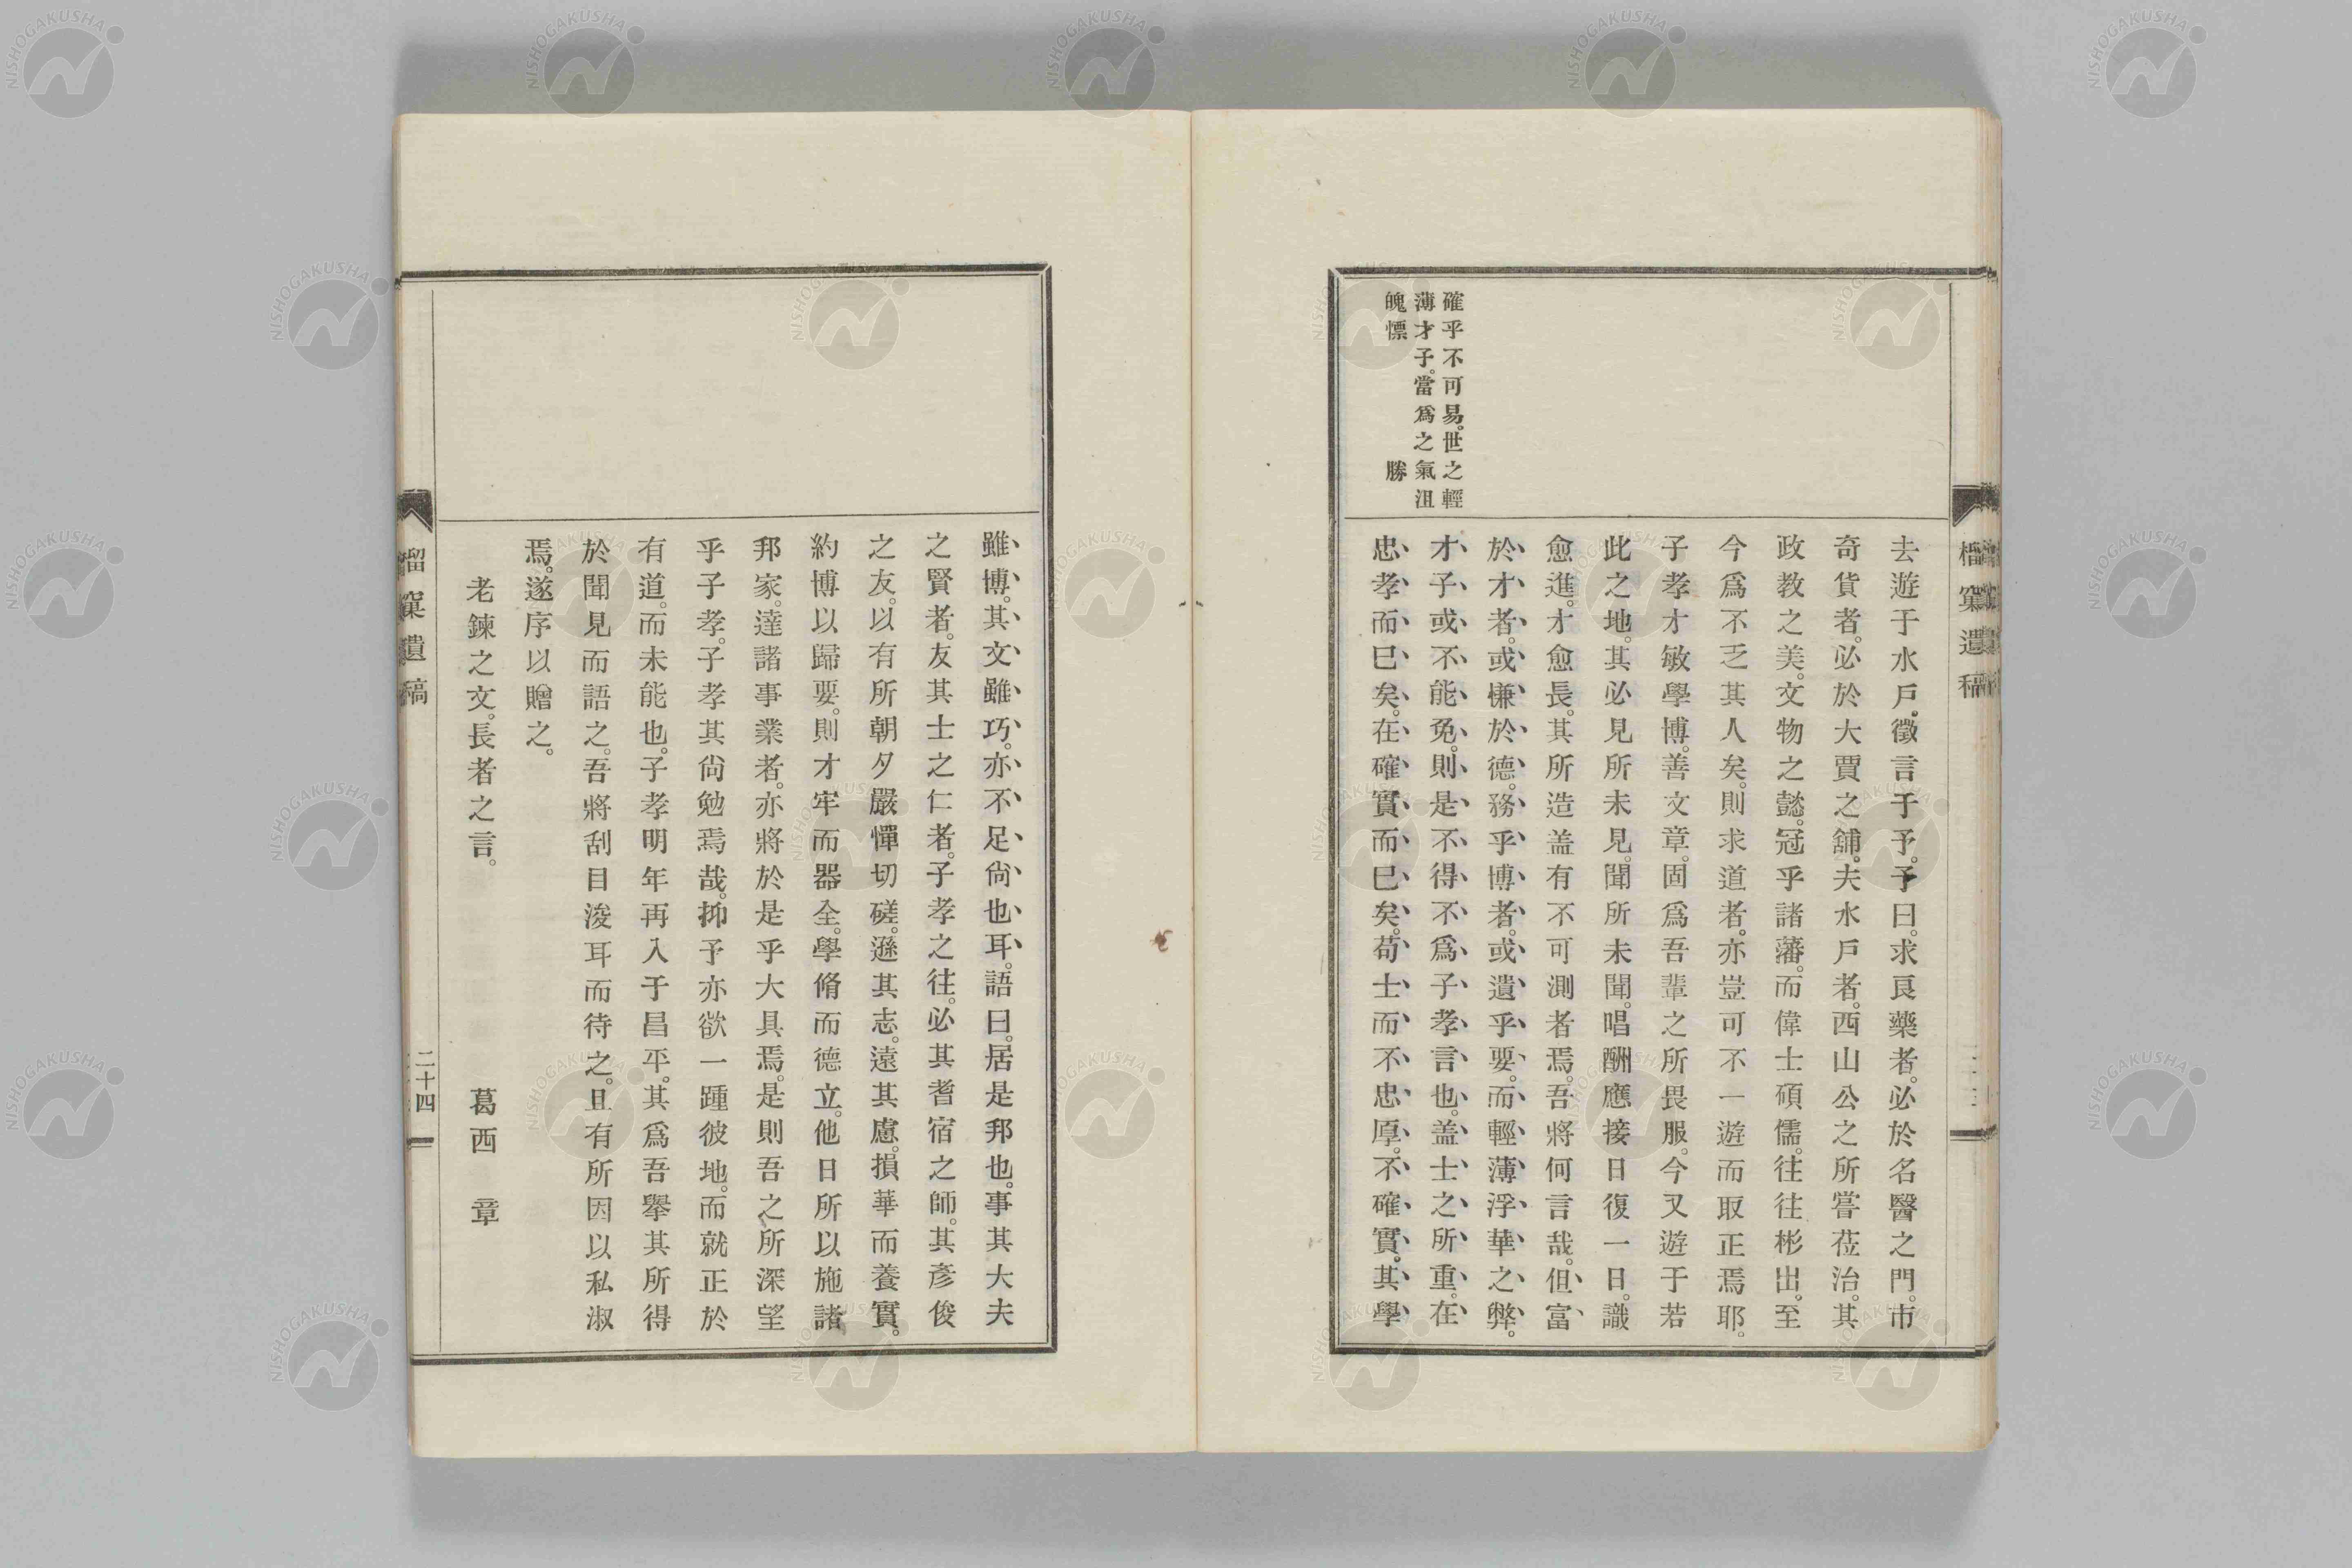 確乎不可易。世之輕
薄才子。當爲之氣沮
魄慄　　　　勝
去遊于水戶。徵言于予。予曰。求良藥者。必於名醫之門。市
奇貨者。必於大賈之舖。夫水戶者。西山公之所嘗莅治。其
政教之美。文物之懿。冠乎諸藩。而偉士碩儒。往往彬出。至
今爲不乏其人矣。則求道者。亦豈可不一遊而取正焉耶。
子孝才敏學博。善文章。固爲吾輩之所畏服。今又遊于若
此之地。其必見所未見。聞所未聞。唱酬應接日復一日。識
愈進。才愈長。其所造盖有不可測者焉。吾將何言哉。但富
於才者。或慊於德。務乎博者。或遺乎要。而輕薄浮華之弊。
才子或不能免。則是不得不爲子孝言也。盖士之所重。在
忠孝而巳矣。在確實而巳矣。苟士而不忠厚。不確實。其學
雖博。其文雖巧。亦不足尙也耳。語曰。居是邦也。事其大夫
之賢者。友其士之仁者。子孝之往。必其耆宿之師。其彥俊
之友。以有所朝夕嚴憚切磋。遜其志。遠其慮。損華而養實。
約博以歸要。則才牢而器全。學脩而德立。他日所以施諸
邦家。達諸事業者。亦將於是乎大具焉。是則吾之所深望
乎子孝。子孝其尙勉焉哉。抑予亦欲一踵彼地。而就正於
有道。而未能也。子孝明年再入于昌平。其爲吾擧其所得
於聞見而語之。吾將刮目浚耳而待之。且有所因以私淑
焉。遂序以贈之。
老鍊之文。長者之言。　　　　葛西　章
榴窠遺稿
二十四
榴窠遺稿